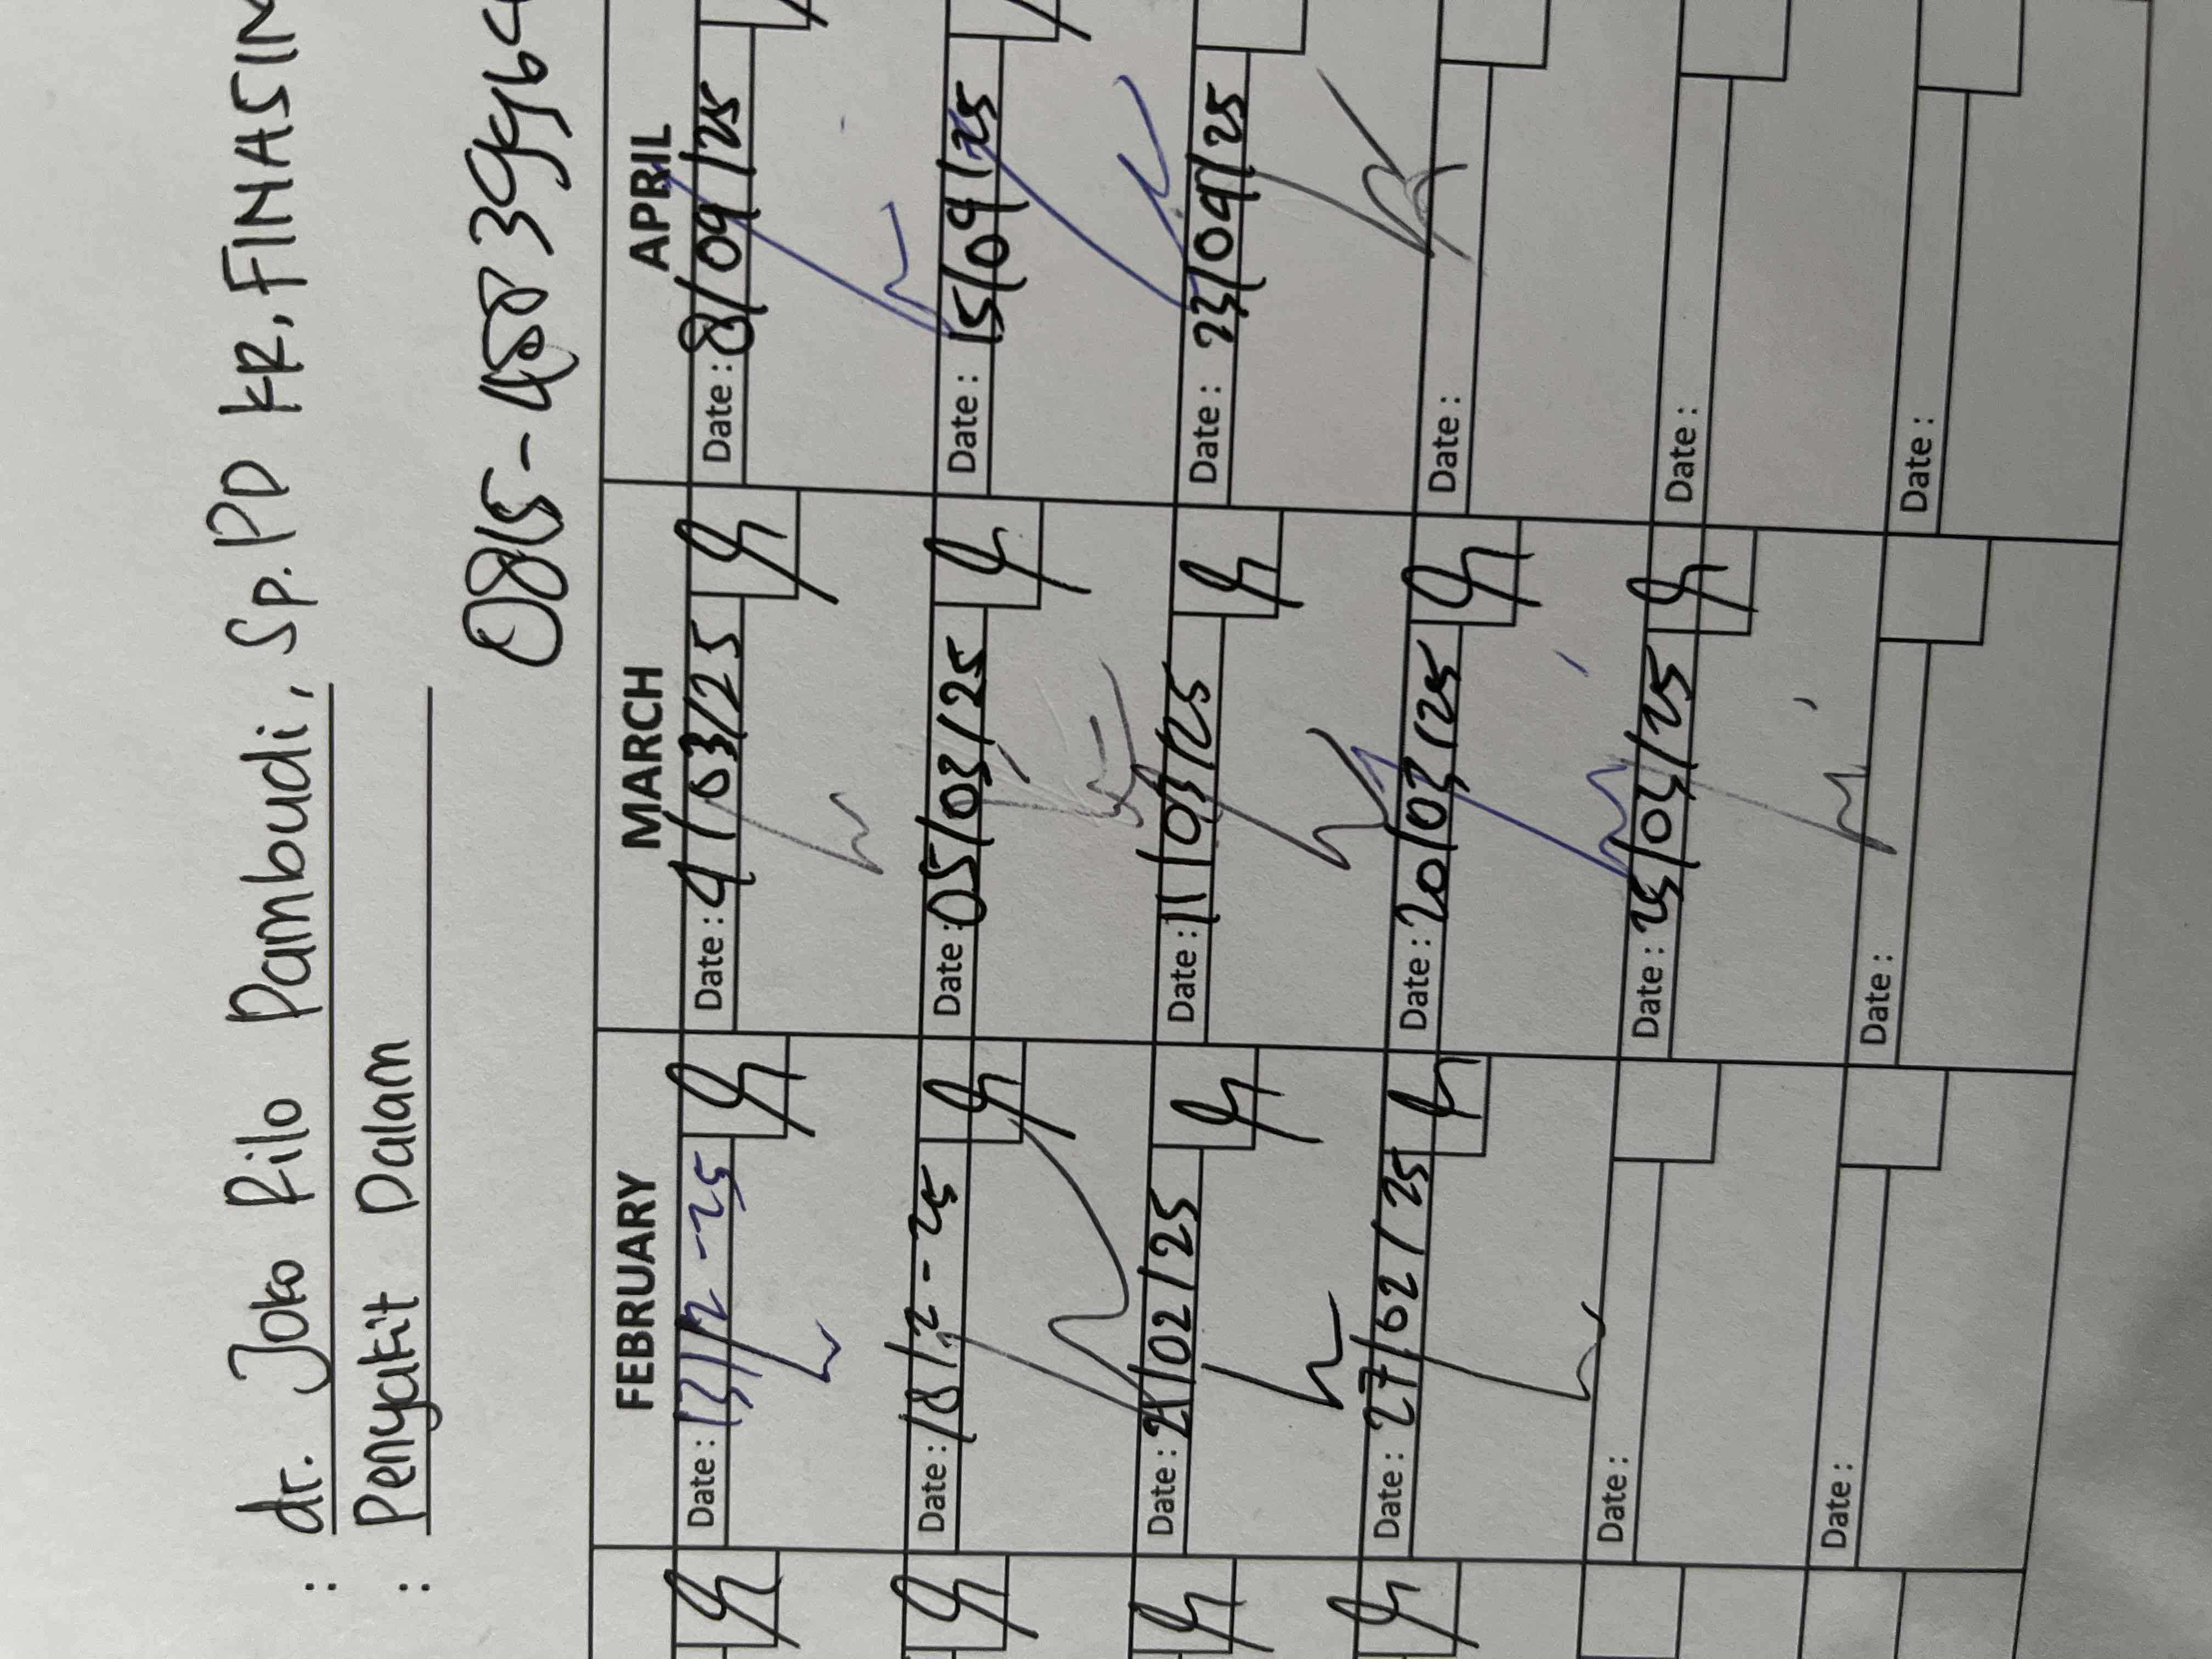 : dr. Joko Rilo Pambudi, Sp.PD KR, FINASIM
: Penyakit Dalam
0815-4883996
FEBRUARY MARCH APRIL
Date : 13/2-25 Date : 4/03/25 Date : 8/04/25
Date : 18/2-25 Date : 05/03/25 Date : 15/04/25
Date : 21/02/25 Date : 11/03/25 Date : 23/04/25
Date : 27/02/25 Date : 20/03/25 Date :
Date : Date : 25/03/25 Date :
Date : Date : Date :